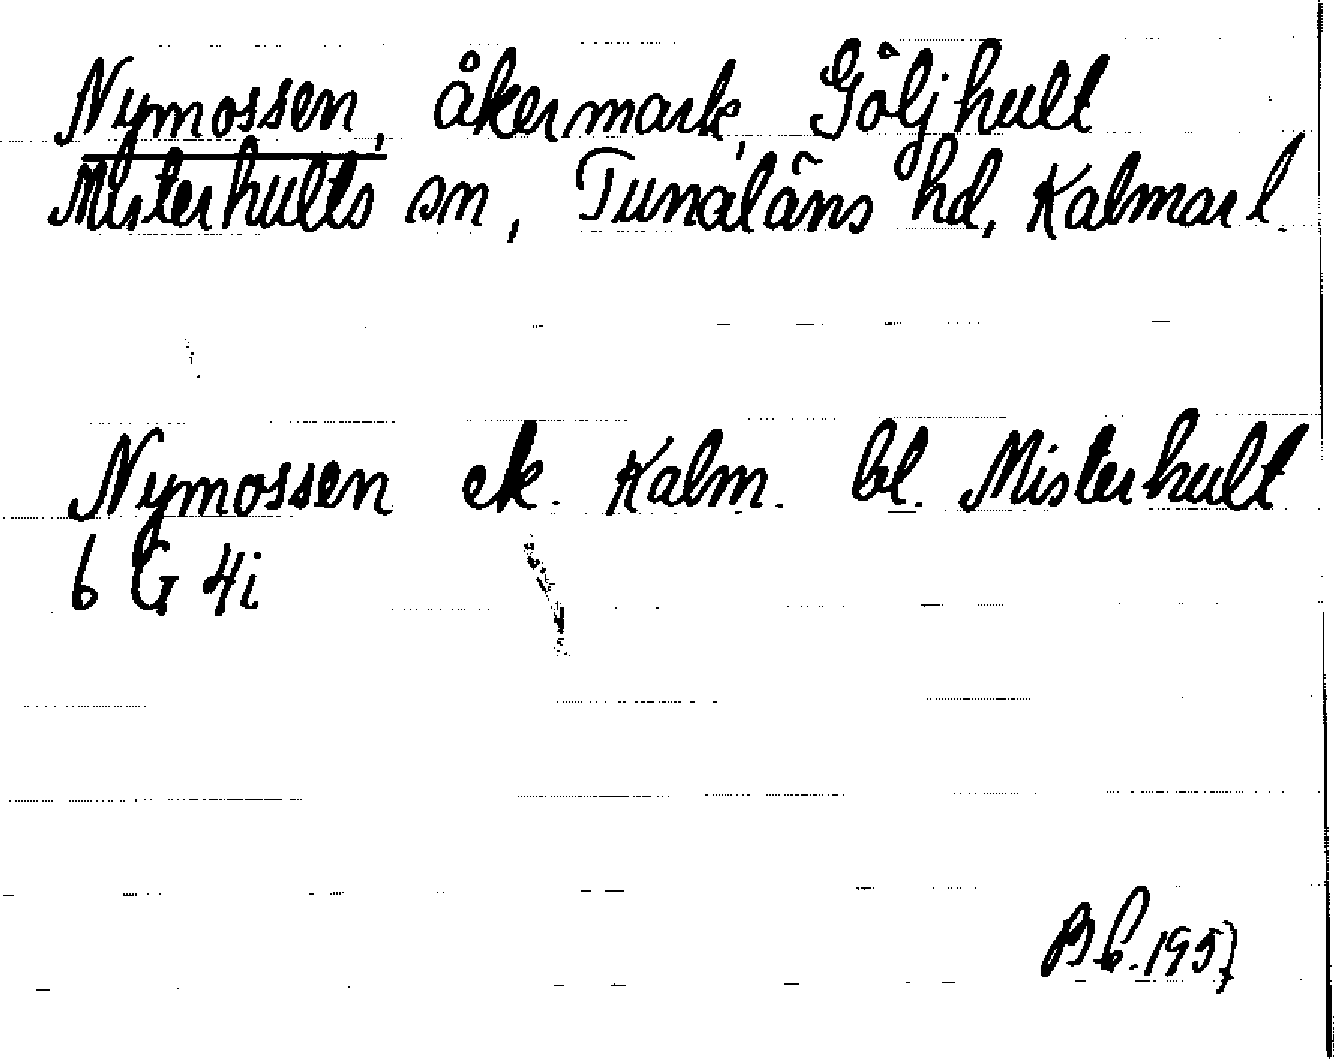 Nymossen, åkermark, Göljhult
Misterhults sn, Tunaläns hd, Kalmar l.
Nymossen ek. Kalm. bl. Misterhult
6 G 4i
B.b. 1957